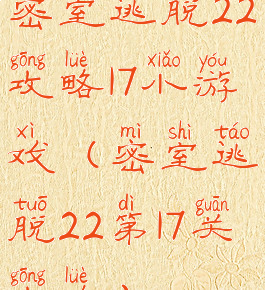 密室逃脱22
gōng lüè xiǎo yóu
攻略17小游
xì mì shì táo
戏（密室逃
tuō dì guān
脱22第17关
gōng lüè